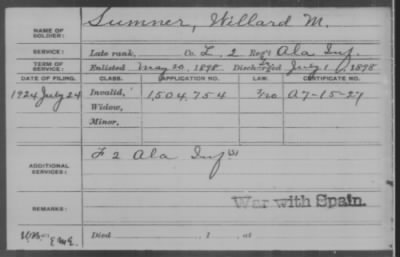 NAME OF SOLDIER: Sumner, Willard M.
SERVICE: Late rank, Co. L, 2 Reg't Ala Inf.
TERM OF SERVICE: Enlisted May 20, 1898 Discharged July 1, 1898
DATE OF FILING. CLASS. APPLICATION NO. LAW. CERTIFICATE NO.
1924 July 24 Invalid, 1,504,754 A7-15-27
Widow,
Minor,
ADDITIONAL SERVICES: F 2 Ala Inf
War with Spain.
REMARKS:
Died , 1 , at